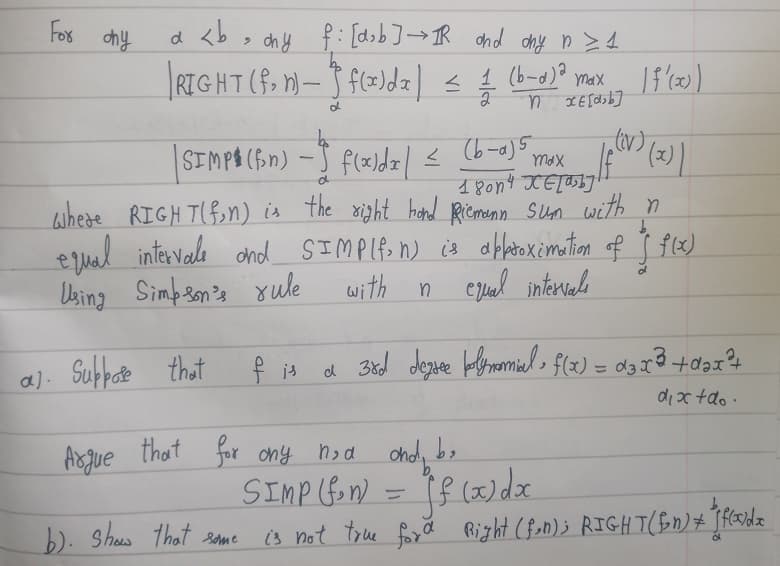 For any a < b, any f : [a,b] → ℝ and any n ≥ 1
|RIGHT(f,n) - ∫_a^b f(x)dx| ≤ 1/2 (b-a)²/n max_{x∈[a,b]} |f'(x)|
|SIMP(f,n) - ∫_a^b f(x)dx| ≤ (b-a)⁵/180n⁴ max_{x∈[a,b]} |f^(iv)(x)|
where RIGHT(f,n) is the right hand Riemann Sum with n
equal intervals and SIMP(f,n) is approximation of ∫_a^b f(x)
Using Simpson's rule with n equal intervals
a). Suppose that f is a 3rd degree polynomial, f(x) = a₃x³ + a₂x² +
a₁x + a₀.
Argue that for any n, a and, b,
SIMP(f,n) = ∫_a^b f(x)dx
b). Show that same is not true for Right (f,n); RIGHT(f,n) ≠ ∫_a^b f(x)dx